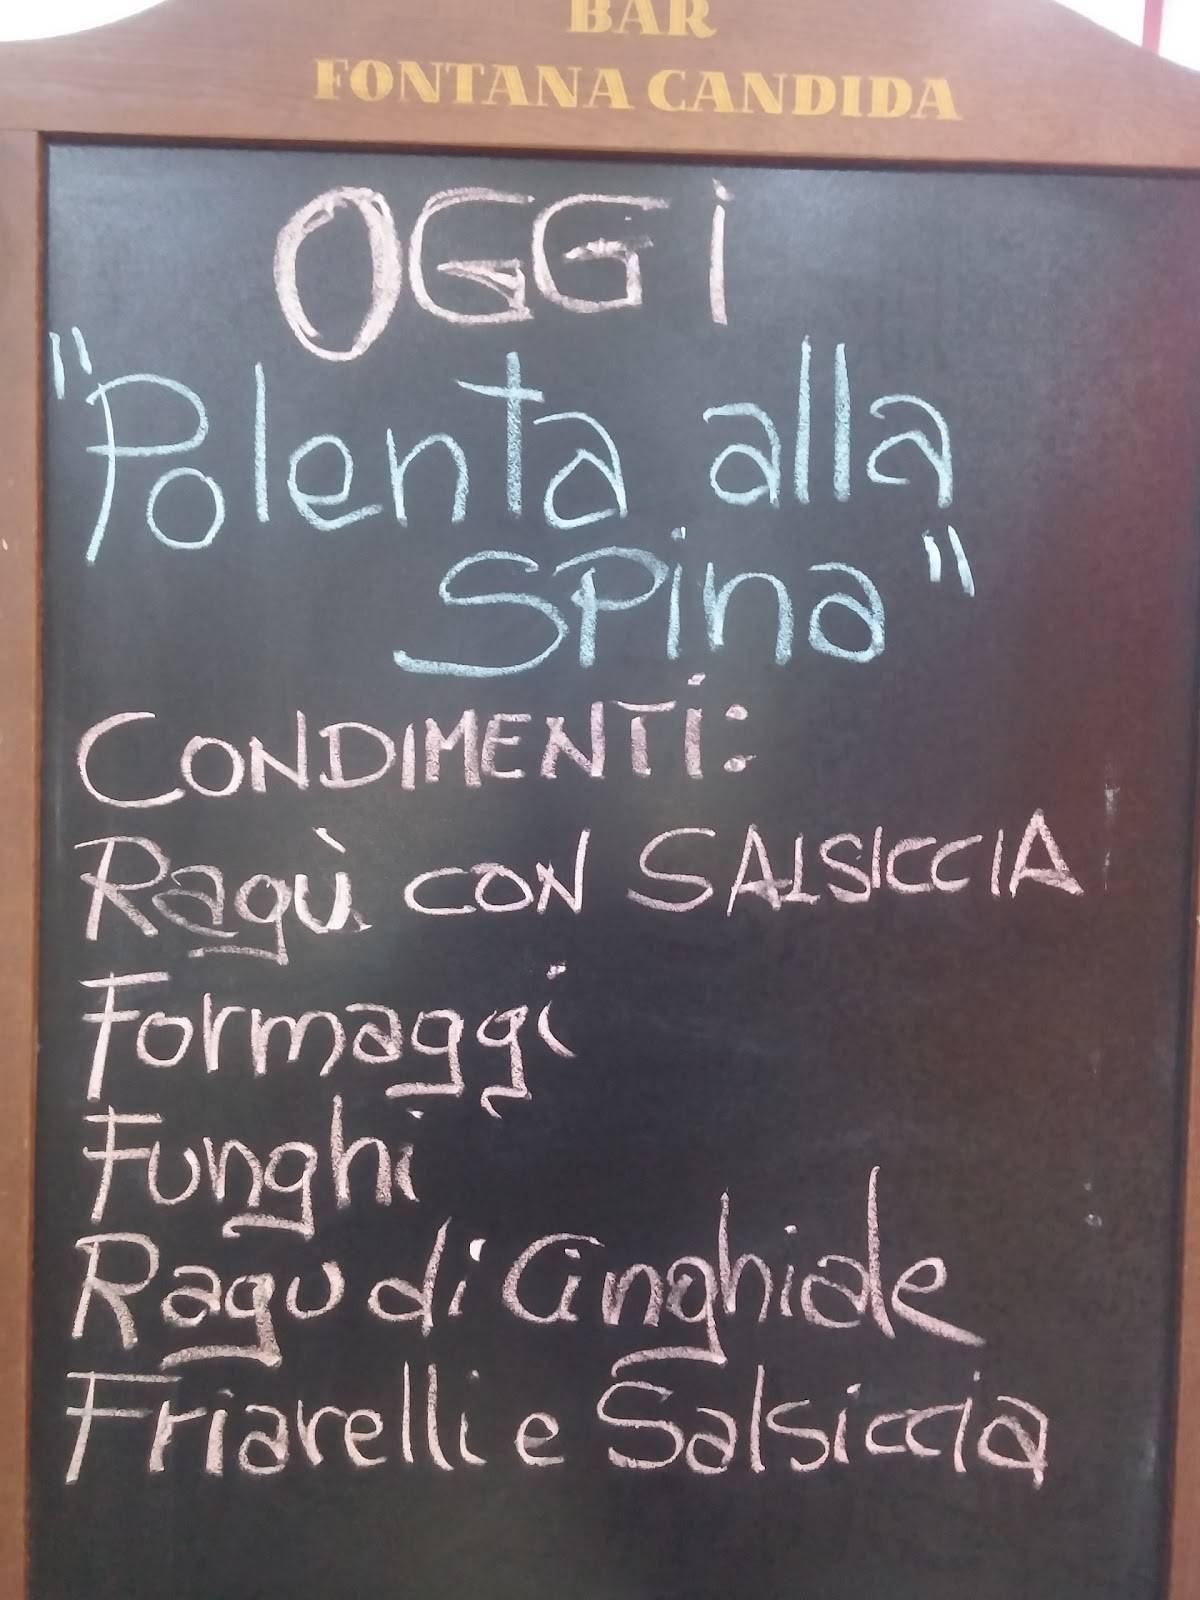 BAR
FONTANA CANDIDA
OGGi
"Polenta alla
SPina"
CONDIMENTi:
Ragù CON SALSICCIA
Formaggi
Funghi
Ragu di Cinghiale
Friarelli e Salsiccia